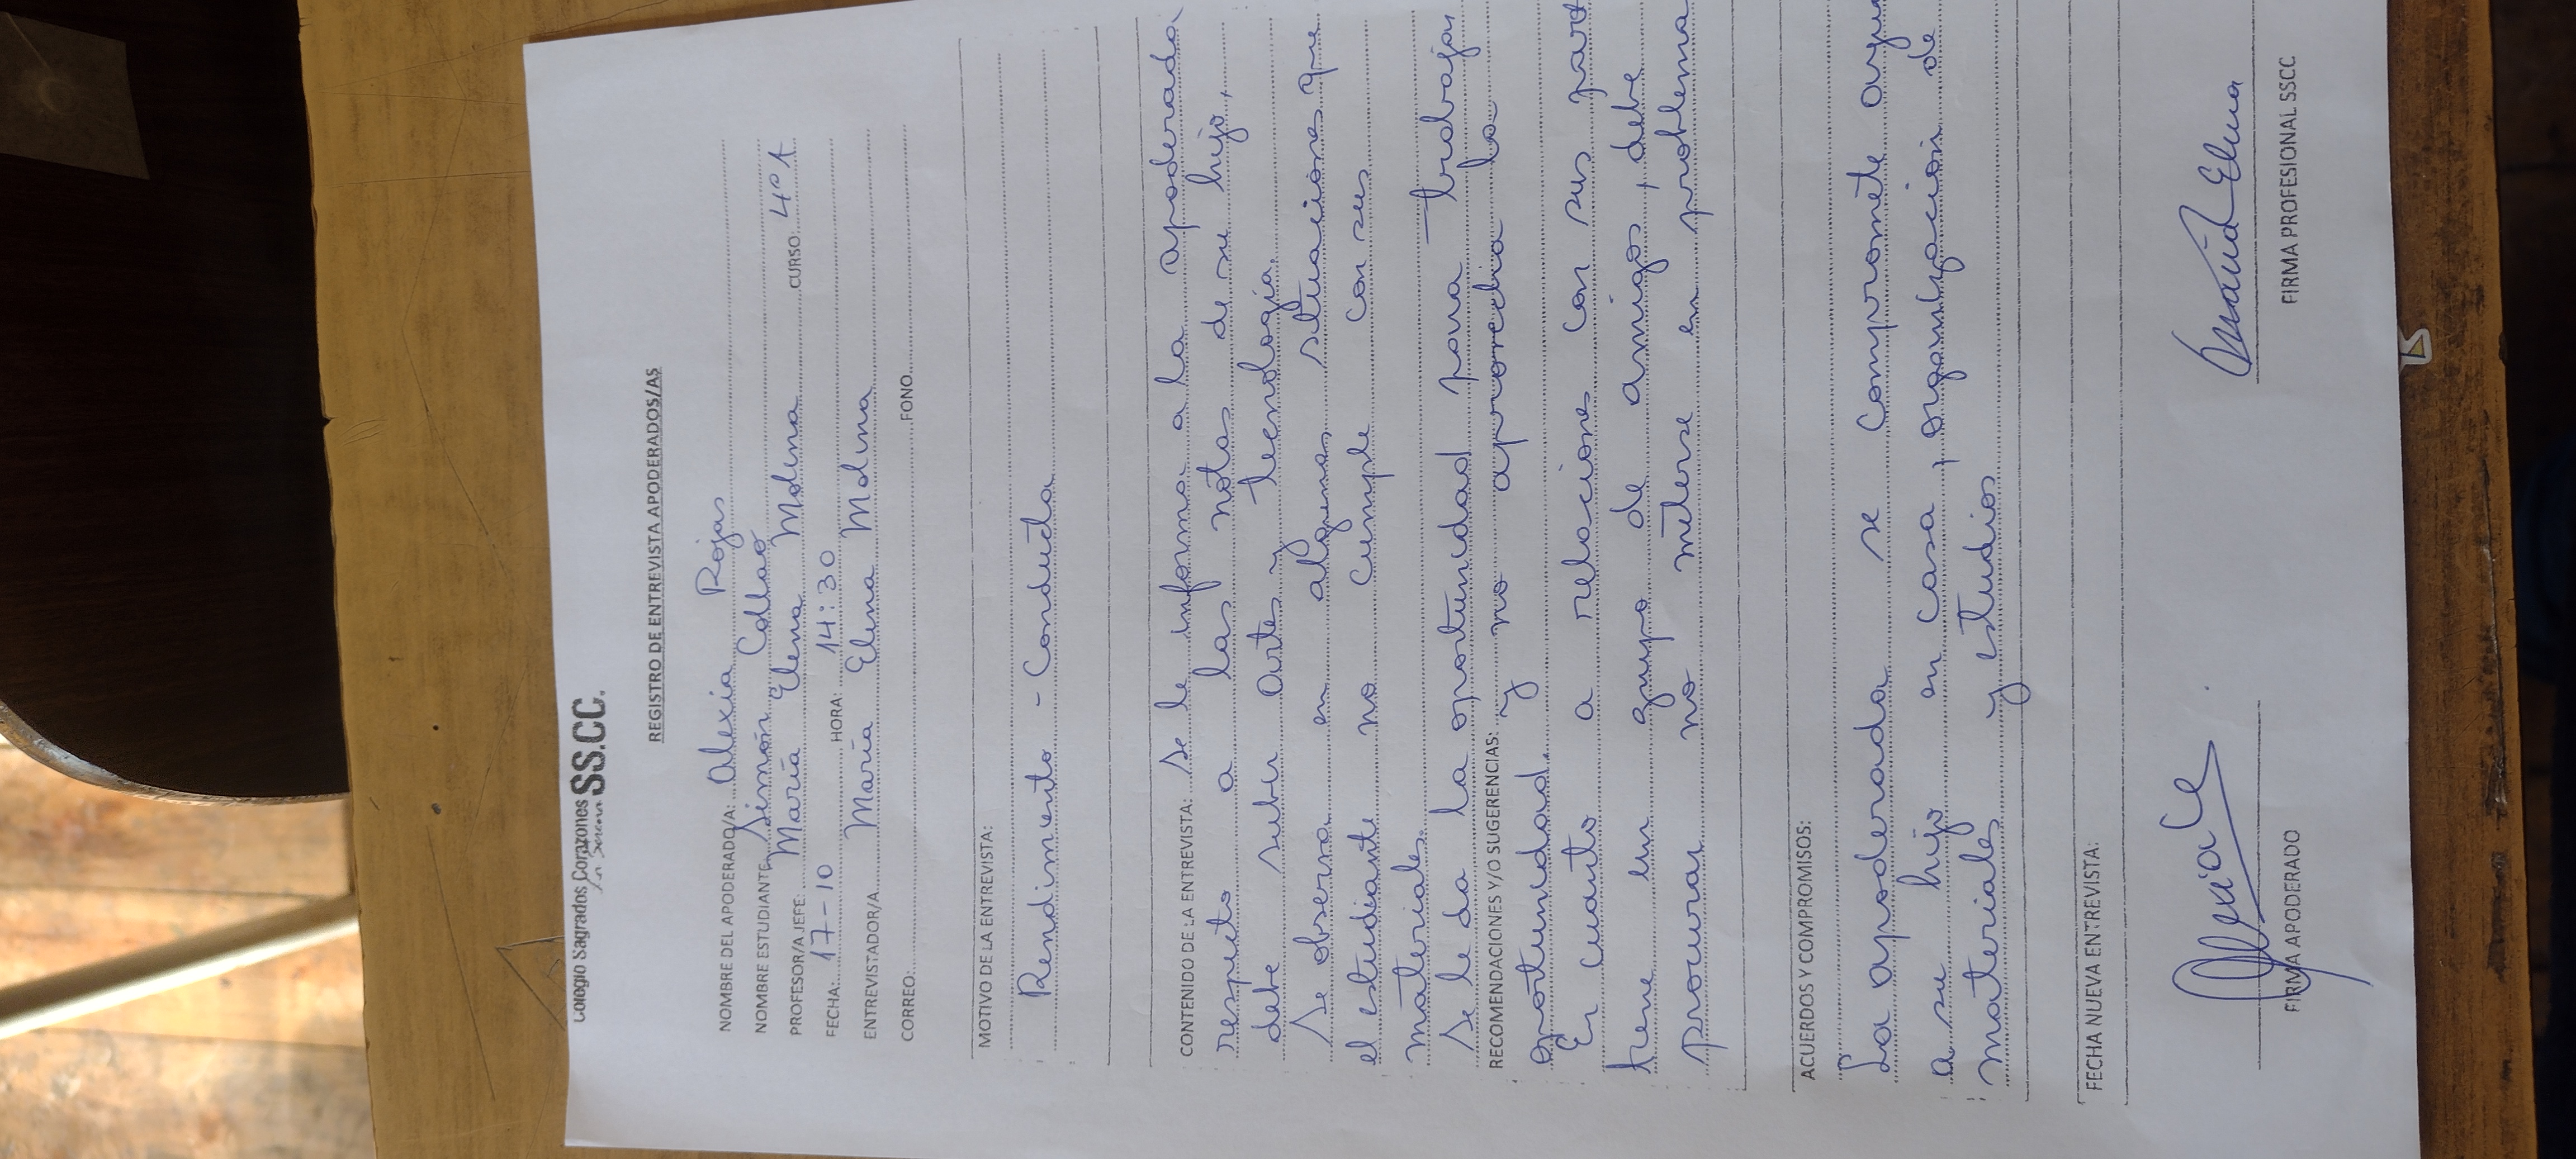 Colegio Sagrados Corazones SS.CC.
La Serena
REGISTRO DE ENTREVISTA APODERADOS/AS
NOMBRE DEL APODERADO/A: Alexia Rojas
NOMBRE ESTUDIANTE: Simón Collao
PROFESOR/A JEFE: María Elena Molina CURSO: 4°A
FECHA: 17-10 HORA: 14:30
ENTREVISTADOR/A María Elena Molina
CORREO: FONO
MOTIVO DE LA ENTREVISTA:
Rendimiento - Conducta
CONTENIDO DE LA ENTREVISTA: Se le informa a la apoderada
respecto a las notas de su hijo,
debe subir Artes y tecnología.
Se observa en algunas situaciones que
el estudiante no cumple con sus
materiales.
Se le da la oportunidad para trabajar
RECOMENDACIONES Y/O SUGERENCIAS: y no aprovecha la
oportunidad.
En cuanto a relaciones con sus
tiene un grupo de amigos, debe
procurar no meterse en problema
ACUERDOS Y COMPROMISOS:
La apoderada se compromete
a su hijo en casa, organización de
materiales y estudios
FECHA NUEVA ENTREVISTA:
Alexia C
María Elena
FIRMA APODERADO FIRMA PROFESIONAL SSCC